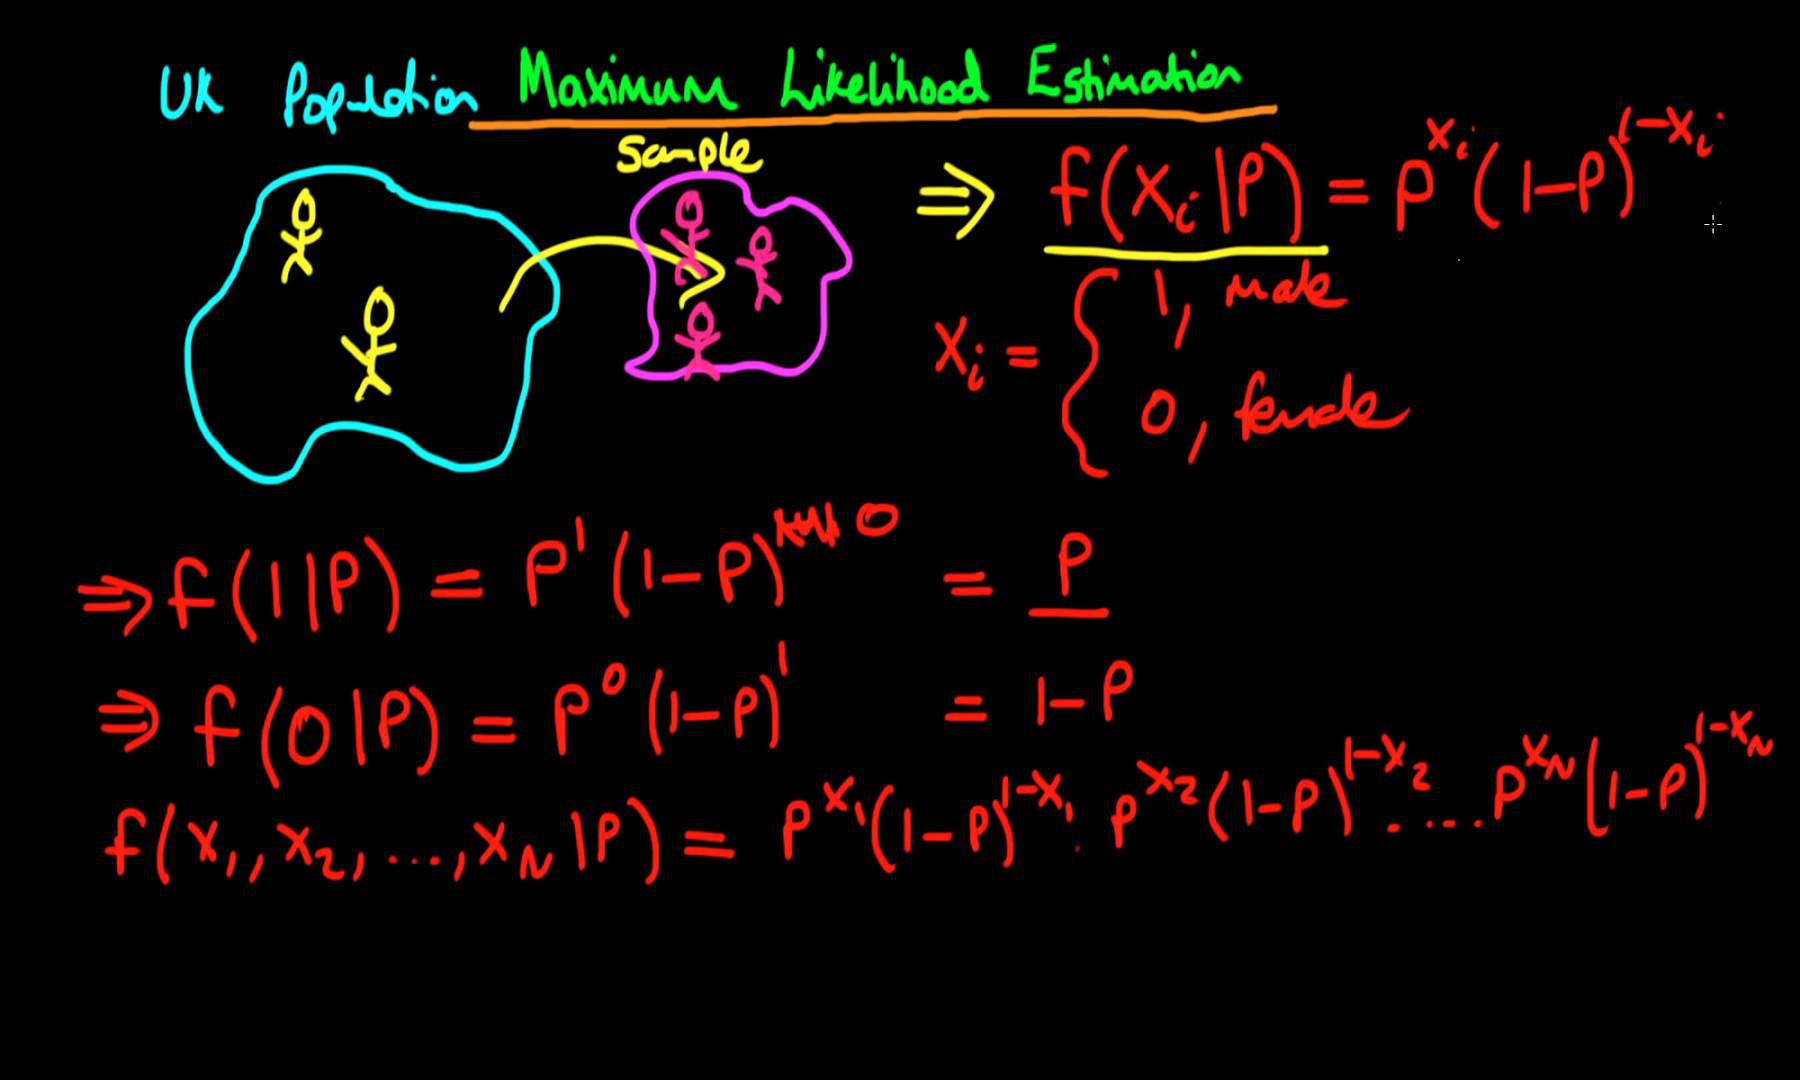 UK Population Maximum Likelihood Estimation
Sample
⇒ f(xᵢ|P) = P^xᵢ (1-P)^1-xᵢ
xᵢ = { 1, male
0, female
⇒ f(1|P) = P^1 (1-P)^0 = P
⇒ f(0|P) = P^0 (1-P)^1 = 1-P
f(x₁, x₂, ..., x_N|P) = P^x₁ (1-P)^1-x₁ . P^x₂ (1-P)^1-x₂ .... P^x_N (1-P)^1-x_N